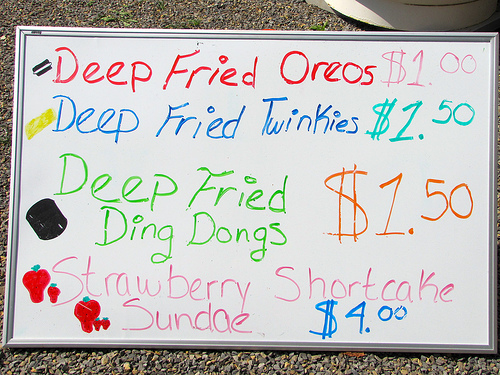 Deep Fried Oreos $1.00
Deep Fried Twinkies $1.50
Deep Fried $1.50
Ding Dongs
Strawberry Shortcake
Sundae $4.00